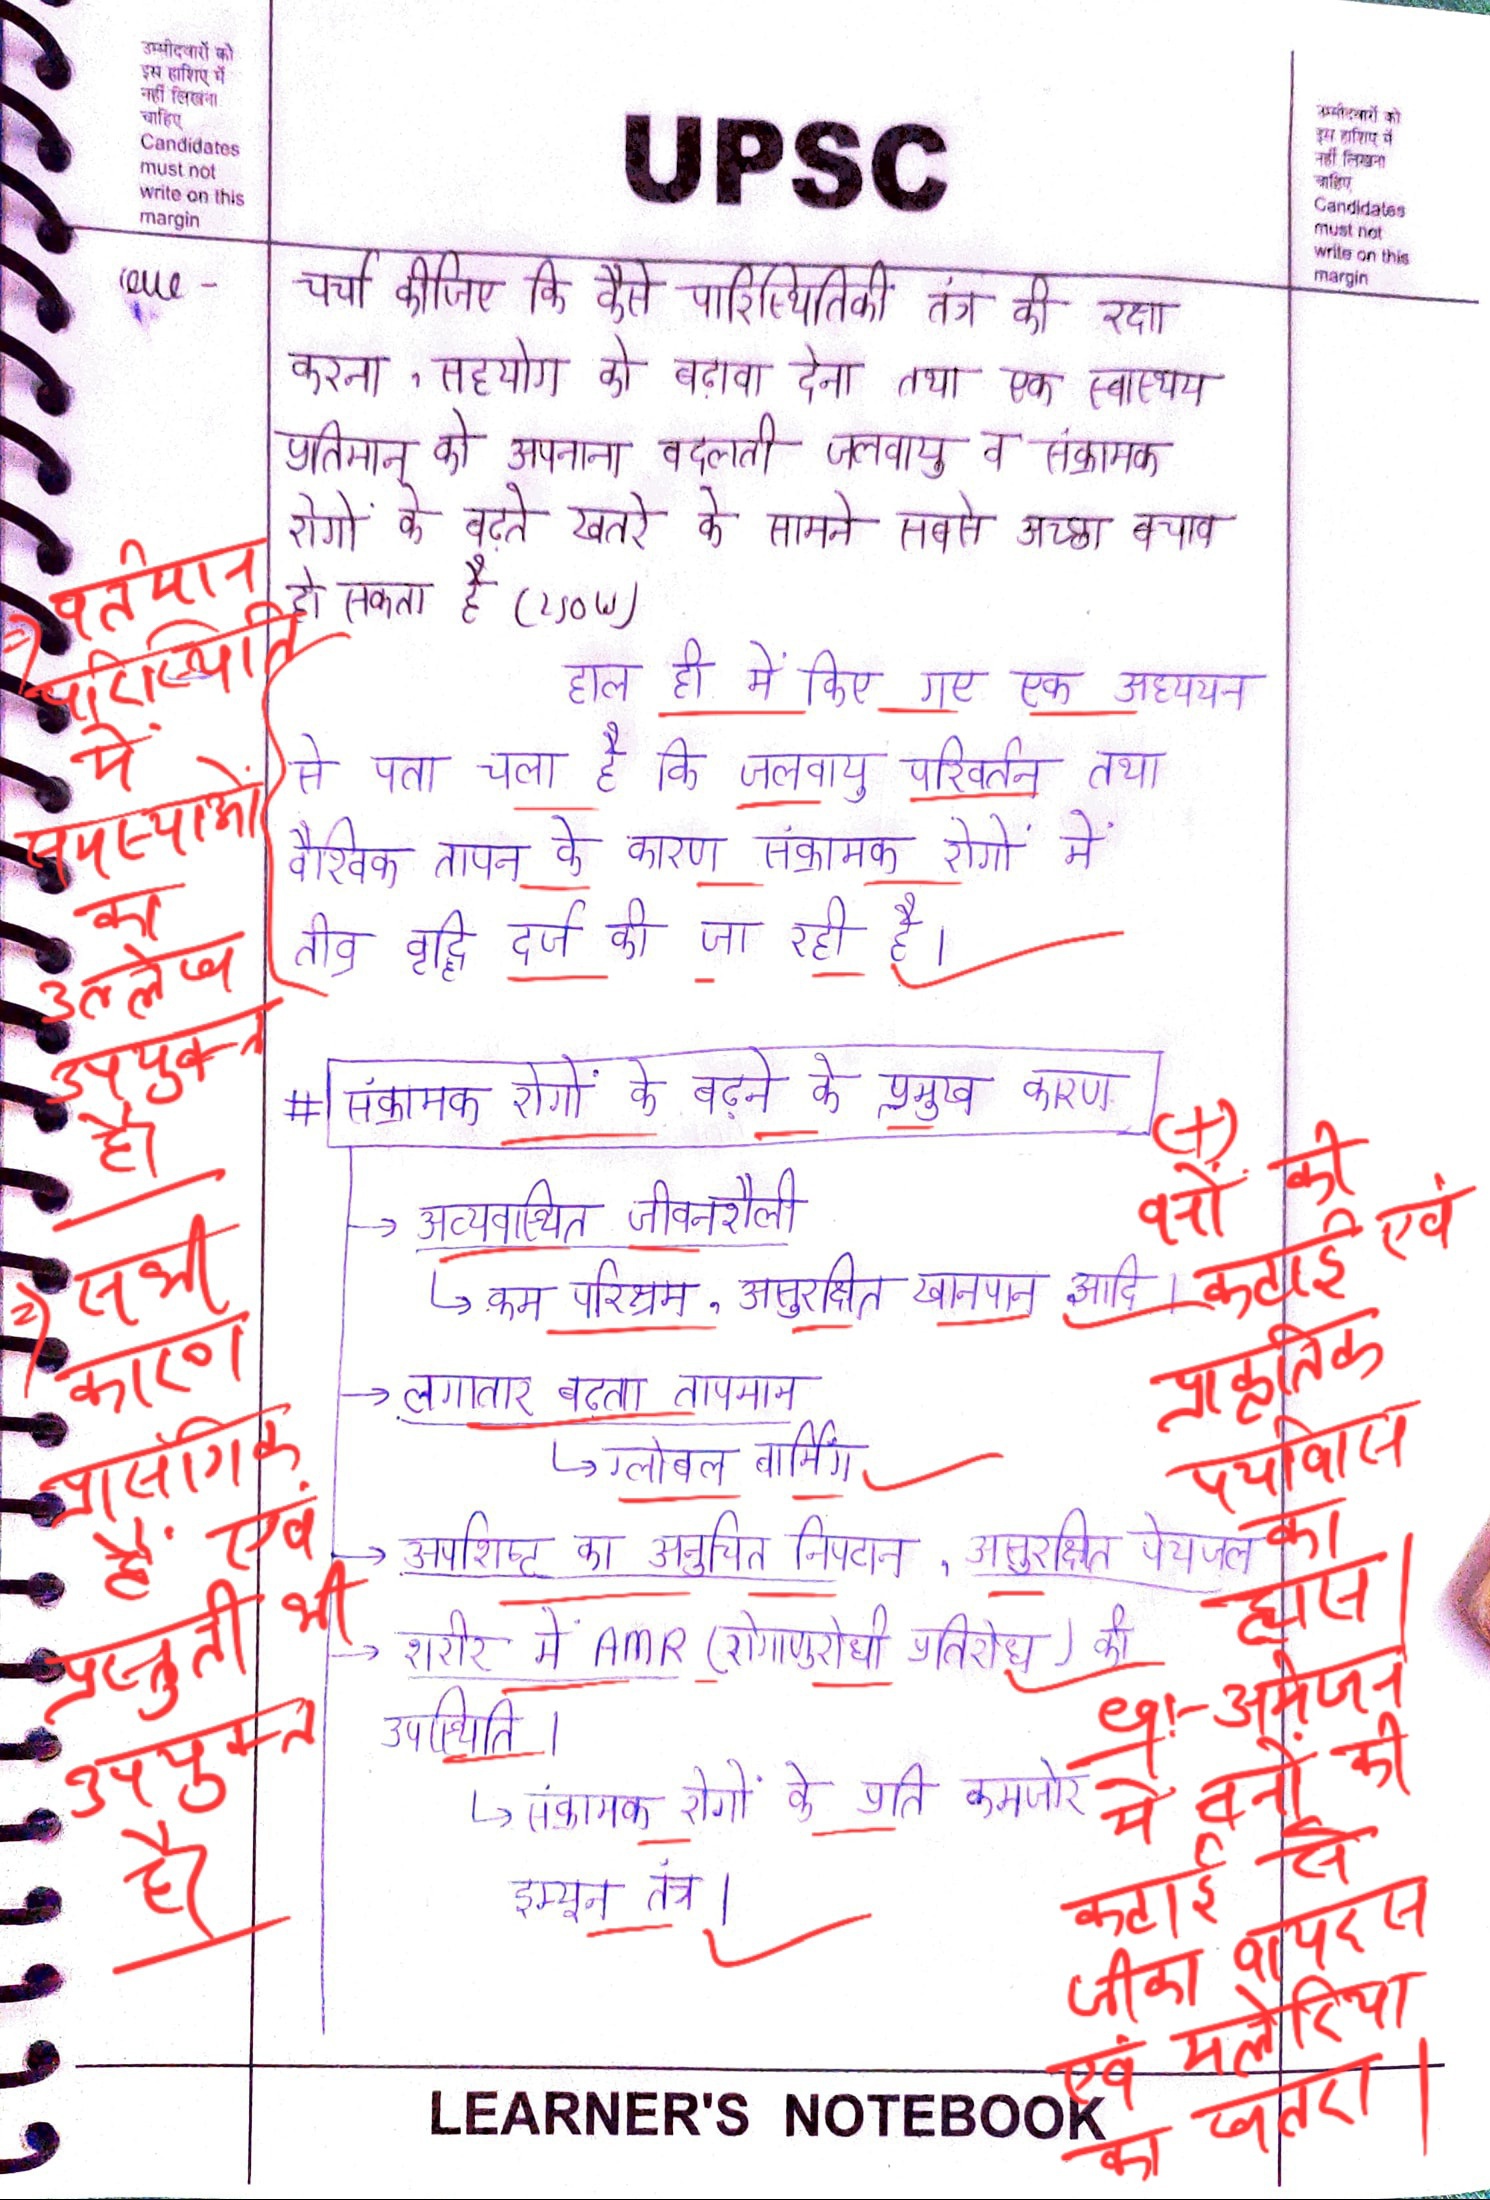 उम्मीदवारों को
इस हाशिए में
नहीं लिखना
चाहिए
Candidates
must not
write on this
margin
UPSC
उम्मीदवारों को
इस हाशिए में
नहीं लिखना
चाहिए
Candidates
must not
write on this
margin
चर्चा कीजिए कि कैसे पारिस्थितिकी तंत्र की रक्षा
करना, सहयोग को बढ़ावा देना तथा एक स्वास्थय
प्रतिमान को अपनाना बदलती जलवायु व संक्रामक
रोगों के बढ़ते खतरे के सामने सबसे अच्छा बचाव
हो सकता है (250W)
हाल ही में किए गए एक अध्ययन
से पता चला है कि जलवायु परिवर्तन तथा
वैश्विक तापन के कारण संक्रामक रोगों में
तीव्र वृद्धि दर्ज की जा रही है।
# संक्रामक रोगों के बढ़ने के प्रमुख कारण
→ अव्यवास्थित जीवनशैली
↳ कम परिश्रम, असुरक्षित खानपान आदि।
→ लगातार बढ़ता तापमान
↳ ग्लोबल वार्मिंग
→ अपशिष्ट का अनुचित निपटान, असुरक्षित पेयजल
→ शरीर में AMR (रोगाणुरोधी प्रतिरोध) की
उपस्थिति।
↳ संक्रामक रोगों के प्रति कमजोर
इम्यून तंत्र।
1) वर्तमान
परिस्थिति
में
समस्याओं
का
उल्लेख
उपयुक्त
है।
2) सभी
कारण
प्रासंगिक
हैं एवं
प्रस्तुती भी
उपयुक्त
है।
(+)
वनों की
कटाई एवं
प्राकृतिक
पर्यावास
का
ह्रास।
अमेजन
में वनों की
कटाई से
जीका वायरस
एवं मलेरिया
का खतरा।
LEARNER'S NOTEBOOK